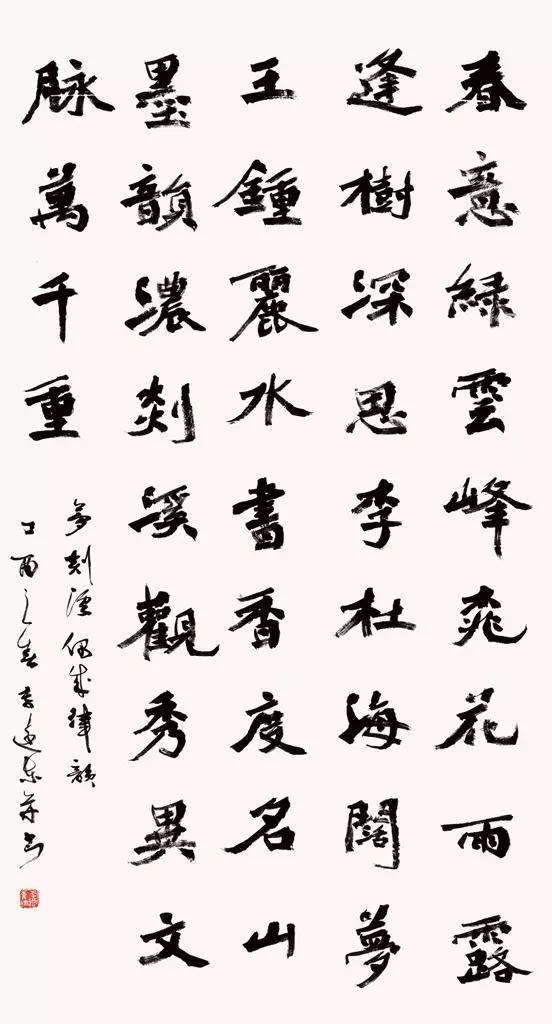 春意綠雲峰桃花雨露
逢樹深思李杜海闊夢
王鍾麗水書香度名山
墨韻濃剡溪觀秀異文
脈萬千重
偶成律韻
丁酉之春李遠東并書